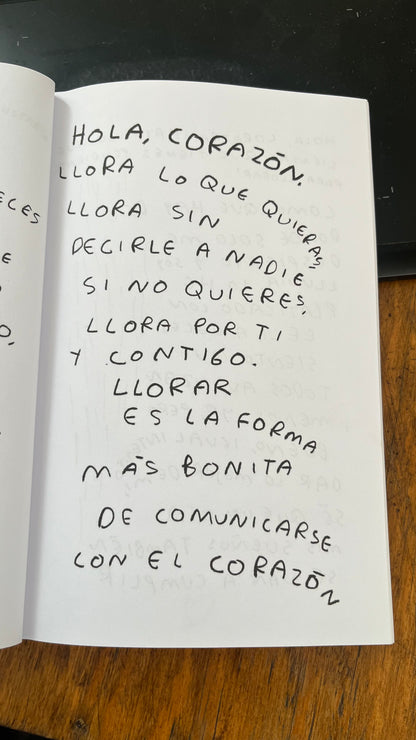 HOLA, CORAZÓN.
LLORA LO QUE QUIERAS
LLORA SIN
DECIRLE A NADIE
SI NO QUIERES,
LLORA POR TI
Y CONTIGO.
LLORAR
ES LA FORMA
MÁS BONITA
DE COMUNICARSE
CON EL CORAZÓN